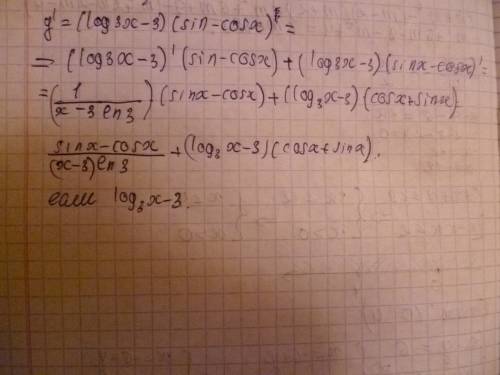 y' = (log3x-3)(sin-cosx)' =
= (log3x-3)'(sin-cosx)+(log3x-3)(sinx-cosx)'=
=(1/(x-3 ln3))(sinx-cosx)+((log₃x-3)(cosx+sinx)
(sinx-cosx)/((x-3)ln3)+(log₃x-3)(cosx+sinx).
если log₃x-3.